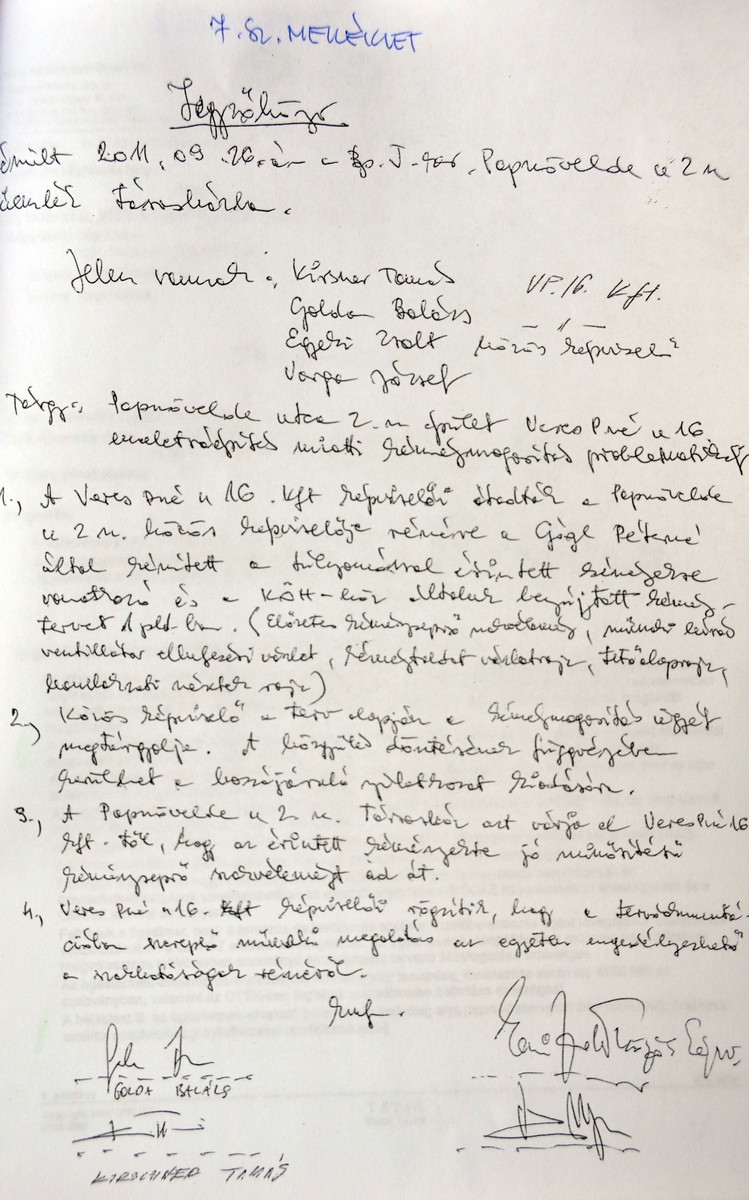 7. SZ. MELLÉKLET
Jegyzőkönyv
2011. 09. 26.-án a Bp. V. ker. Papnövelde u 2 sz
Társasházba.
Jelen vannak: Kirsner Tamás VP.16. Kft.
Golda Balázs — 〃 —
Egeki Zsolt közös képviselő
Varga József
Tárgy: Papnövelde utca 2. sz épület Veres Pné u 16
emeletráépítés miatti kéménymagasítás problematikája
1., A Veres Pné u 16. Kft képviselői átadták a Papnövelde
u 2 sz. közös képviselője részére a Gögl Péterné
által készített a túlnyomással érintett kéményekre
vonatkozó és a által benyújtott kémény-
tervet 1 pld-ban. (Előzetes kéményseprő szakvélemény, műszaki leírás
ventillátor elhelyezési vázlat, kéménytoldat vázlatrajz, tetőalaprajz,
homlokzati részlet rajz)
2., Közös képviselő a terv alapján a kéménymagasítás ügyét
megtárgyalja. A közgyűlés döntésének függvényében
kerülhet a hozzájáruló nyilatkozat kiadásra.
3., A Papnövelde u 2 sz. Társasház azt várja el Veres Pné 16
Kft-től, hogy az érintett kéményekre jó minősítésű
kéményseprő szakvéleményt ad át.
4., Veres Pné u 16. Kft képviselői rögzítik, hogy a tervdokumentá-
cióban szereplő műszaki megoldás az egyetlen engedélyezhető
a szakhatóságok részéről.
Kmf.
GOLDA BALÁZS
KIRSCHNER TAMÁS